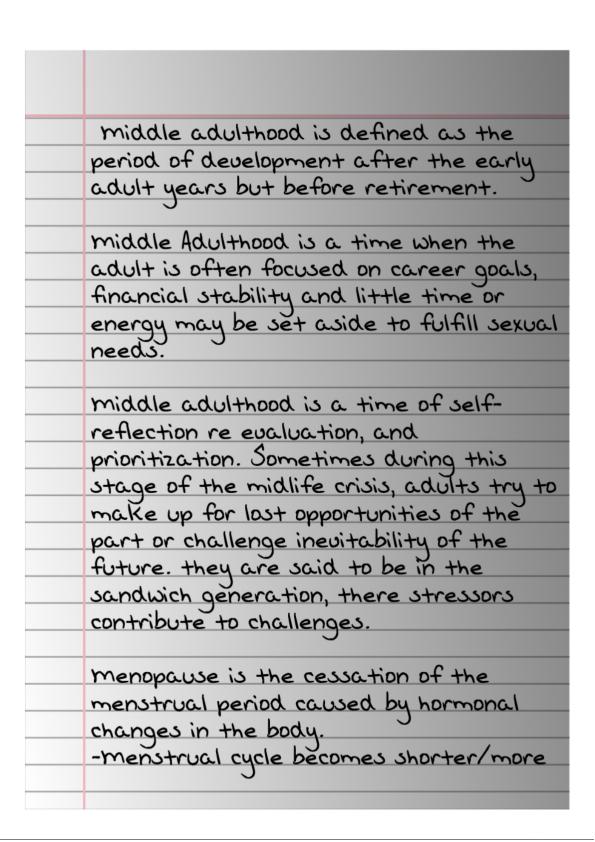 middle adulthood is defined as the
period of development after the early
adult years but before retirement.
middle Adulthood is a time when the
adult is often focused on career goals,
financial stability and little time or
energy may be set aside to fulfill sexual
needs.
middle adulthood is a time of self-
reflection re evaluation, and
prioritization. Sometimes during this
stage of the midlife crisis, adults try to
make up for lost opportunities of the
part or challenge inevitability of the
future. they are said to be in the
sandwich generation, there stressors
contribute to challenges.
menopause is the cessation of the
menstrual period caused by hormonal
changes in the body.
-menstrual cycle becomes shorter/more